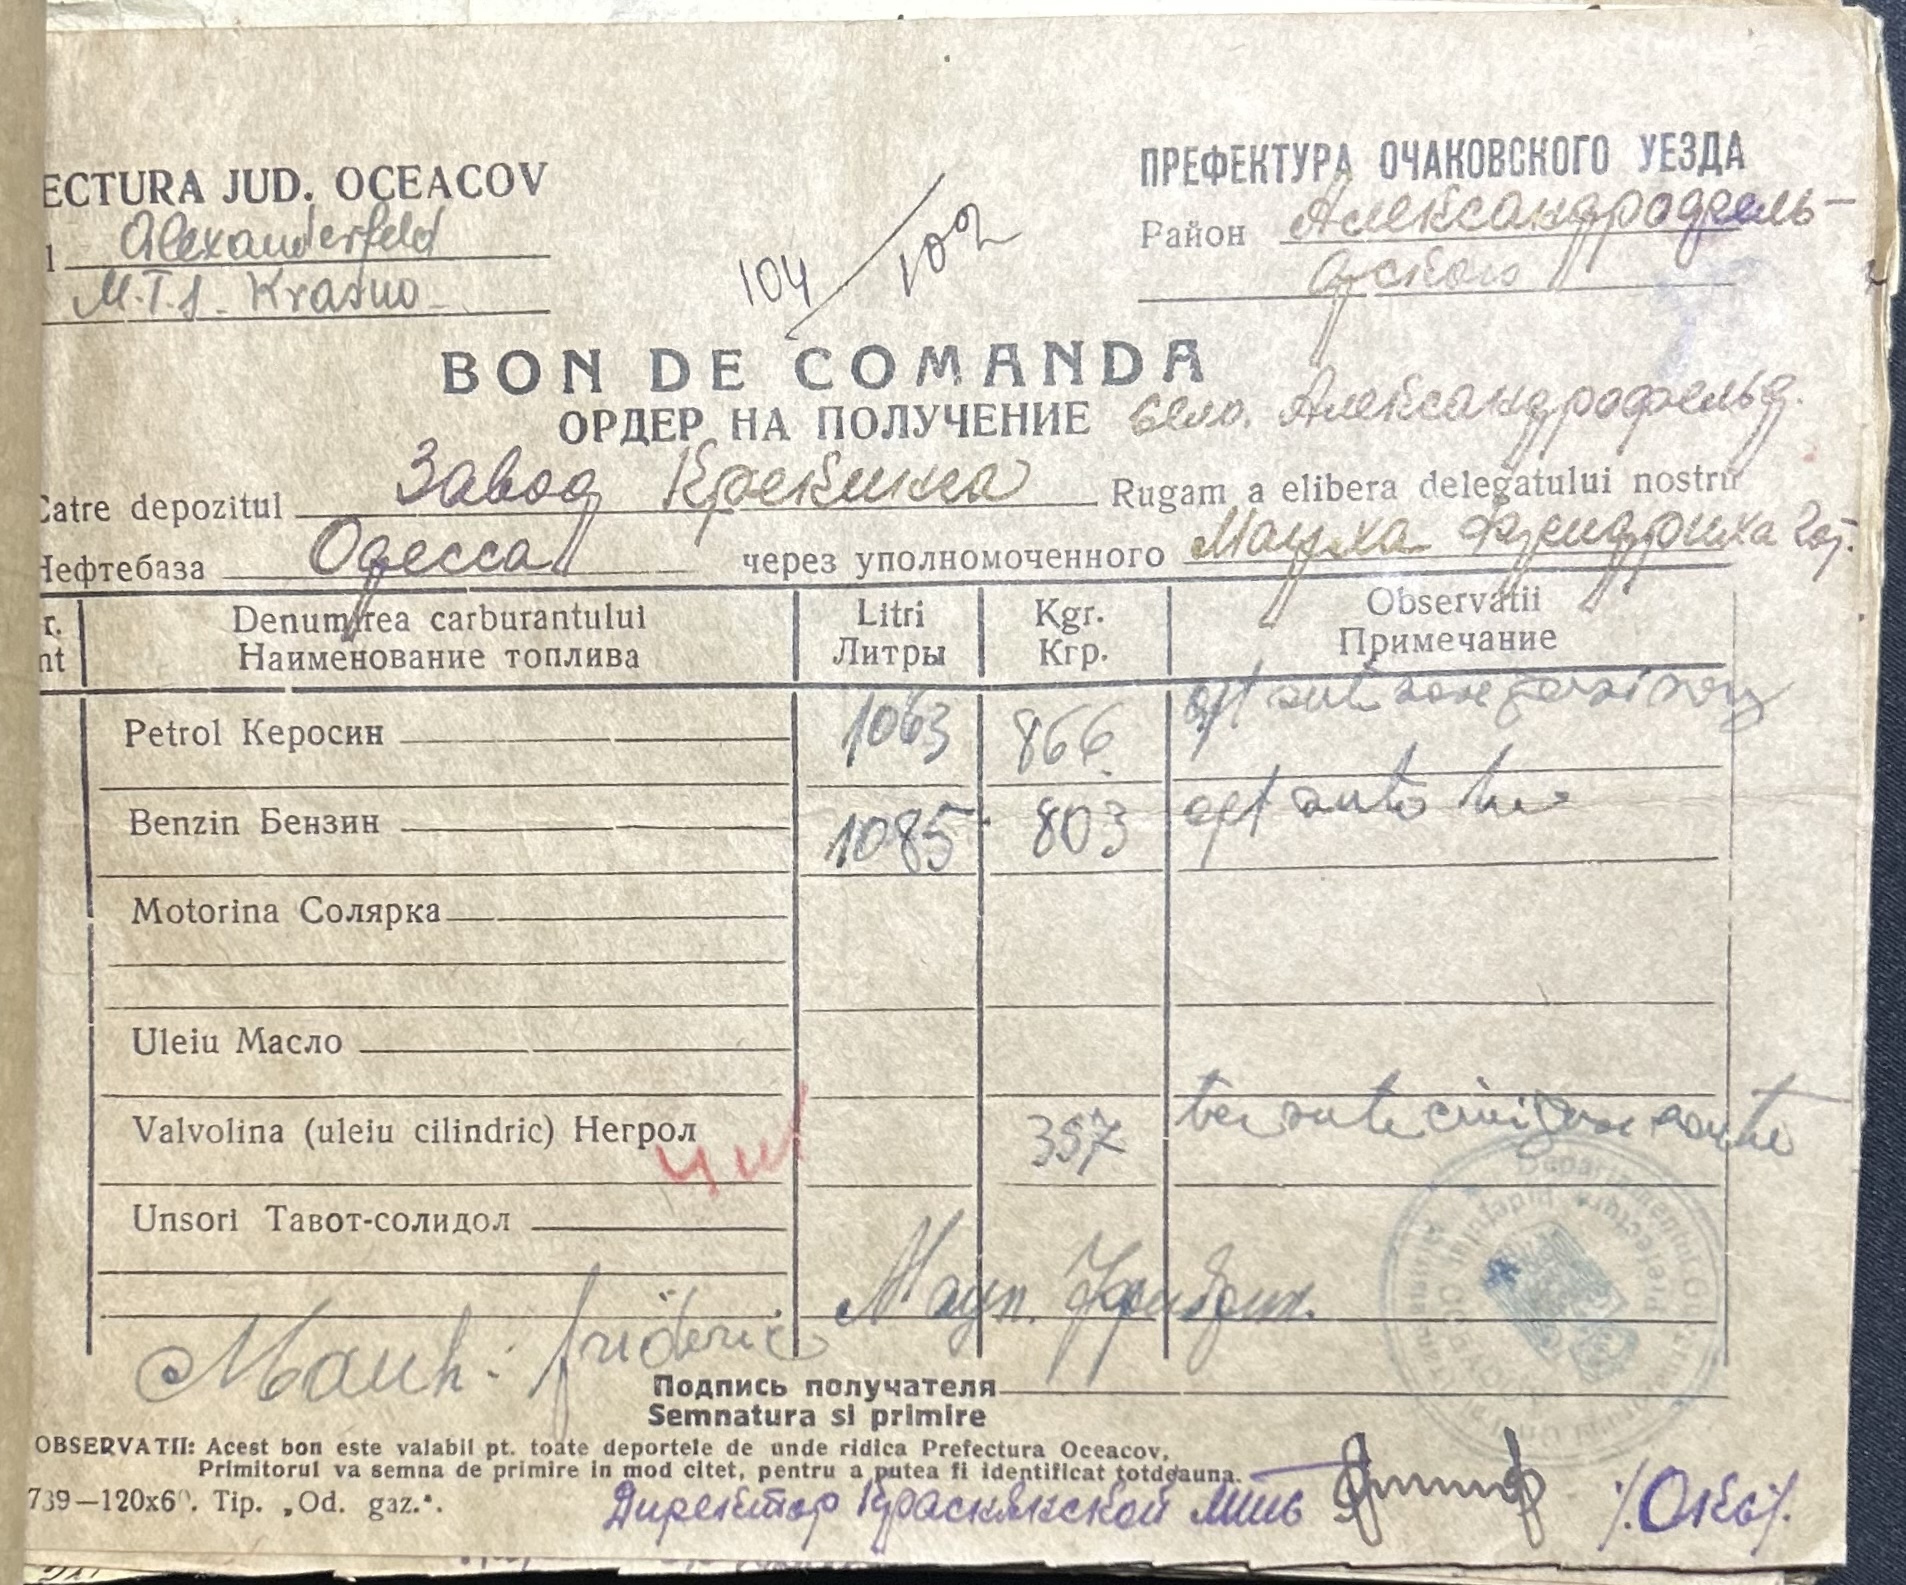 ECTURA JUD. OCEACOV
ПРЕФЕКТУРА ОЧАКОВСКОГО УЕЗДА
l Alexanderfeld
Район Александрофель-
M.T.S. Krasno
дского
104/102
BON DE COMANDA
ОРДЕР НА ПОЛУЧЕНИЕ село. Александрофельд.
Catre depozitul Завод Rugam a elibera delegatului nostru
Нефтебаза Одесса через уполномоченного Мауха Фридриха
r. Denumirea carburantului Litri Kgr. Observatii
nt Наименование топлива Литры Кгр. Примечание
Petrol Керосин 1063 866
Benzin Бензин 1085 803 opt sute trei
Motorina Солярка
Uleiu Масло
Valvolina (uleiu cilindric) Негрол 357 trei sute
Unsori Тавот-солидол
Маух. Фридрих.
Mauh: frideric
Подпись получателя
Semnatura si primire
OBSERVATII: Acest bon este valabil pt. toate deportele de unde ridica Prefectura Oceacov,
Primitorul va semna de primire in mod citet, pentru a putea fi identificat totdeauna.
739—120x60. Tip. „Od. gaz.".
Директор